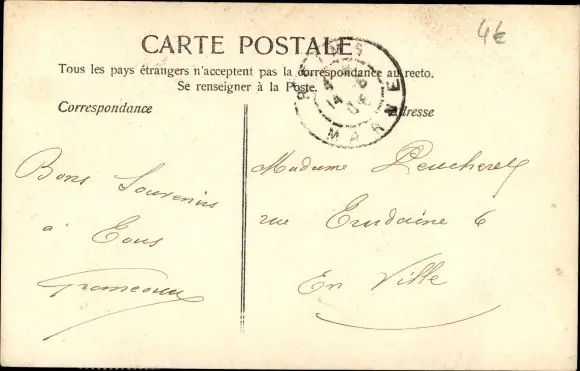 4€
CARTE POSTALE
Tous les pays étrangers n'acceptent pas la correspondance au recto.
Se renseigner à la Poste.
MARNE
Correspondance
Adresse
Bons Souvenirs
à Tous
Madame
rue 6
En Ville